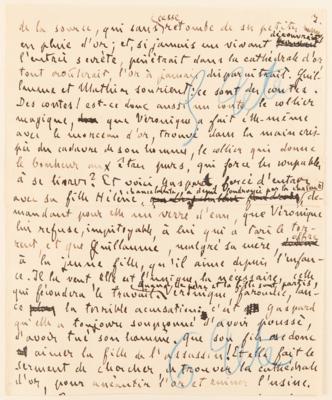 2.
de la source, qui sans cesse retombe de sa petite
en pluie d'or; et si jamais un vivant découvrait
l'entrée secrète, pénétrait dans la cathédrale d'or
tout croulerait, l'or à jamais disparaîtrait. Guil-
laume et Mathieu sourient: ce sont des contes.
Des contes! est-ce donc aussi un conte, le collier
magique, que Véronique a fait elle-même
avec le morceau d'or, trouvé dans la main cris-
pée du cadavre de son homme, le collier qui donne
le bonheur aux êtres purs, qui force les coupables
à se livrer? Et voici Gaspard forcé d'entrer
avec sa fille Hélène, chancelante, à demi foudroyée par la chaleur, de-
mandant pour elle un verre d'eau, que Véronique
lui refuse, impitoyable à lui qui a tari le tor-
rent et que Guillaume, malgré sa mère offre
à la jeune fille, qu'il aime depuis l'enfan-
ce. Il la veut, elle est l'unique, la nécessaire, celle
qui fécondera le travail. Quand le père et la fille sont partis,
Véronique farouche, lan-
ce la terrible accusation: c'est Gaspard
qu'elle a toujours soupçonné d'avoir poussé,
d'avoir tué son homme, que son fils ose donc
aimer la fille de l'assassin! Et elle fait le
serment de chercher, de trouver la cathédrale
d'or, pour anéantir l'or et ruiner l'usine.